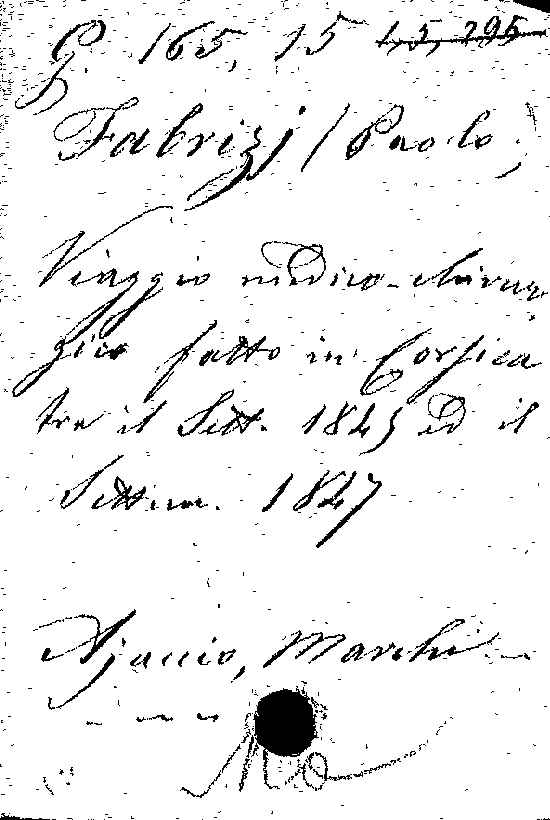 G. 165, 15 1,5, 295
Fabrizj / Paolo,
Viaggio medico-chirur-
gico fatto in Corsica
tra il Sett. 1845 ed il
Settem. 1847
Ajaccio, Marchi